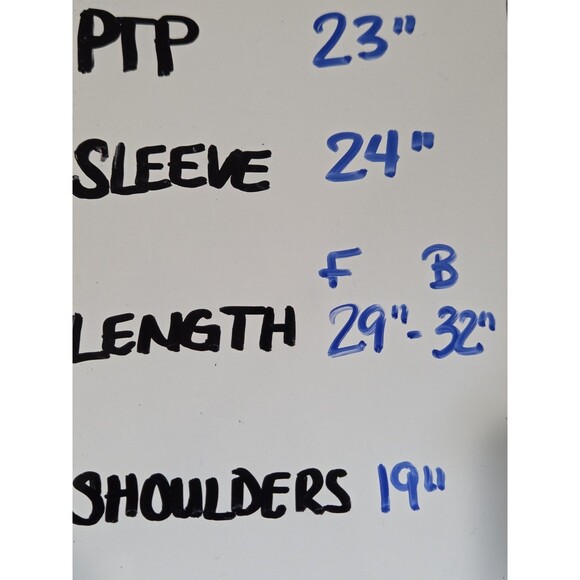 PTP 23"
SLEEVE 24"
F B
LENGTH 29"-32"
SHOULDERS 19"